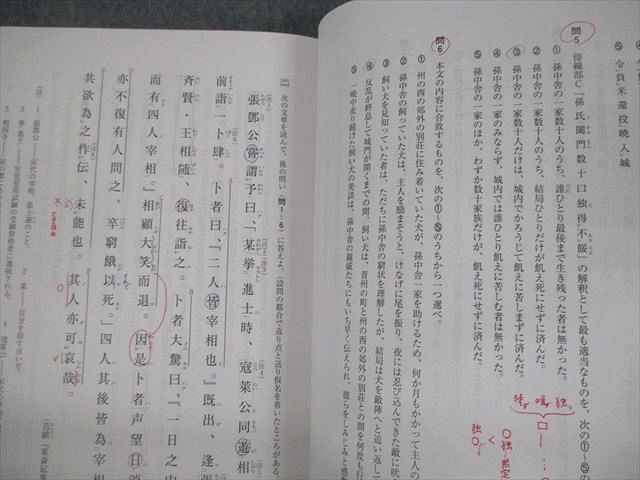 ⑤ 令負米還投晩入城
問5 傍線部C「孫氏闔門数十口独得不餒」の解釈として最も適当なものを、次の①～⑤の
① 孫中舎の一家数十人のうち、誰ひとり最後まで生き残った者は無かった。
② 孫中舎の一家数十人のうち、結局ひとりだけが飢え死にせずに済んだ。
③ 孫中舎の一家数十人だけは、城内でかろうじて飢えに苦しまずに済んだ。
④ 孫中舎の一家のみならず、城内では誰ひとり飢えに苦しむ者は無かった。
⑤ 孫中舎の一家のほか、わずか数十家族だけが、飢え死にせずに済んだ。
独
唯
□
独
＜
問6 本文の内容に合致するものを、次の①～⑤のうちから一つ選べ。
① 州の西の郊外の別荘に住み着いていた犬が、孫中舎一家を助けるため、何か月もかかって主人の
② 孫中舎の飼っていた犬は、主人を励まそうと、けなげに尾を振り、夜には忍び込んできた敵に吠
③ 飼い犬を見知っていた者は、ただちに孫中舎の窮状を理解したが、結局は犬を敵陣へと追い返して
④ 反乱が終息して城門が開くまでの間、飼い犬は、青州の町と州の西の郊外の別荘との間を何度も行
⑤ 一晩中走り続けた飼い犬の美談は、孫中舎の親戚たちにもいち早く伝えられ、彼らをしみじみと感
次の文章を読んで、後の問い（問1～6）に答えよ。（設問の都合で返り点と送り仮名を省いたところがある。
張鄧公嘗謂予曰、「某挙進士時、寇萊公同遊相
前詣一卜肆。卜者曰、『二人皆宰相也。』既出、逢張
斉賢・王相随、復往詣之。卜者大驚曰、『一日之内
而有四人宰相。』相顧大笑而退。因是卜者声望日消
亦不復有人問之、卒窮餓以死。」四人其後皆為宰
其欲為之作伝、未能也。其人亦可哀哉。
（范鎮『東斎記事
（注）
1 張鄧公――宋代の宰相、張士遜のこと。
2 某――自分を指す言い方。
3 挙進士――官吏登用試験の受験資格者に選抜される。
4 寇萊公――宋
5 相国寺――